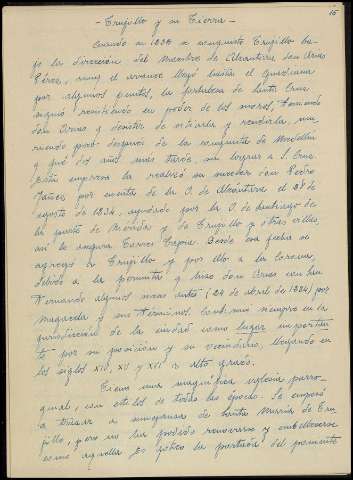 15
- Trujillo y su Tierra -
Cuando en 1232 se conquistó Trujillo ba-
jo la dirección del Maestre de Alcántara don Arias
Pérez, aunque el avance llegó hasta el Guadiana
por algunos puntos, la fortaleza de Santa Cruz
siguió resistiendo en poder de los moros,
don Arias y de sitiarla y rendirla,
poco después de la conquista de Medellín
y que dos años mas tarde, sin lograr a S. Cruz.
Esta empresa la realizó su sucesor don Pedro
Yañez por cuenta de la O. de Alcántara el 28 de
agosto de 1234, ayudado por la O. de Santiago de
la puebla de y de Trujillo y otras villas,
así lo asegura Torres Tapia. Desde esa fecha se
agregó a Trujillo y por ello a la Corona,
debido a la permuta que hizo don Arias con San
Fernando algunos meses antes (24 de abril de 1234) por
Magacela y sus términos. Continuó siempre en la
jurisdicción de la ciudad como lugar importan-
te por su posición y su vecindario, llegando en
los siglos XIV, XV y XVI a alto grado.
Tiene una magnífica iglesia parro-
quial, con estilos de todas las épocas. Se empezó
a trazar a semejanza de Santa María de Tru-
jillo, pero no ha podido renovarse y embellecerse
como aquella. Es gótica la portada del poniente